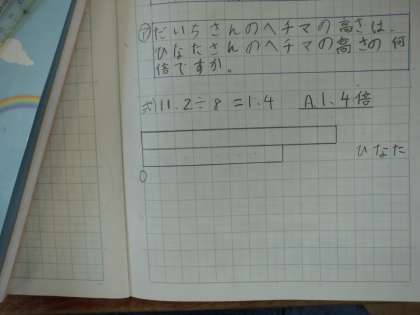 ⑰だいちさんのヘチマの高さは、
ひなたさんのヘチマの高さの何
倍ですか。
式11.2÷8=1.4 A.1.4倍
ひなた
0